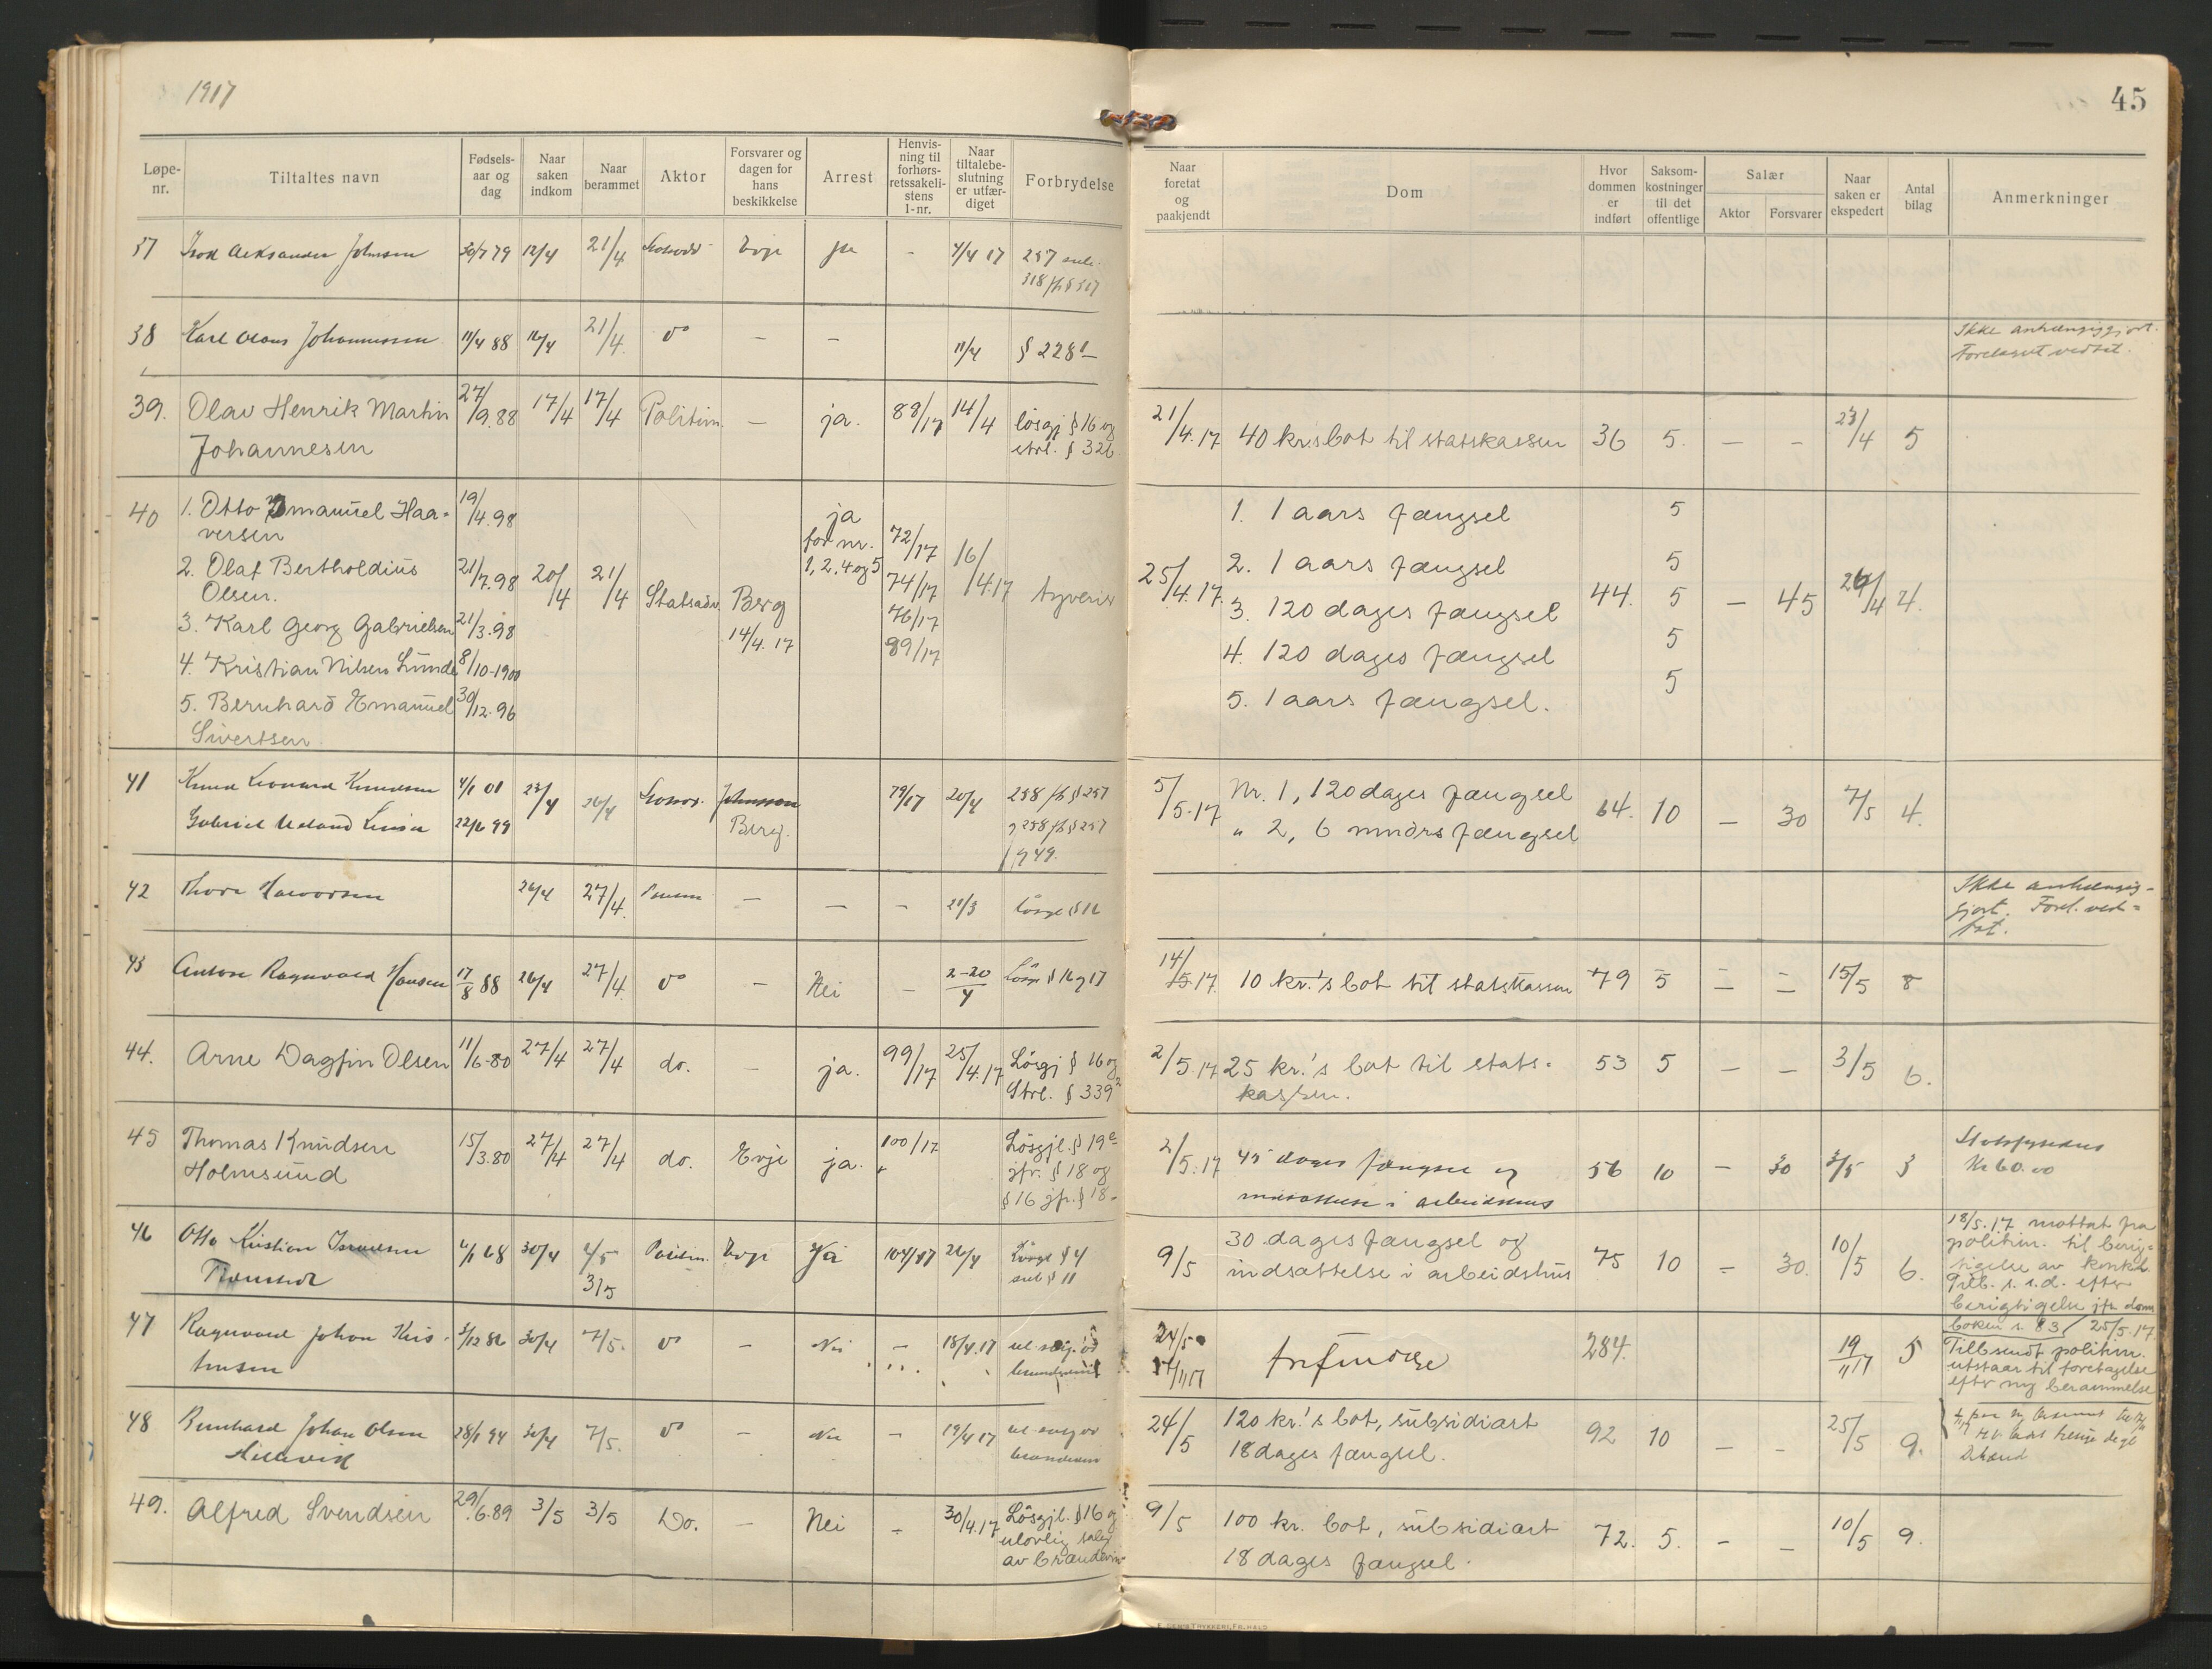 1917
45
Løpe-nr.
Tiltaltes navn
Fødsels-aar og dag
Naar saken indkom
Naar berammet
Aktor
Forsvarer og dagen for hans beskikkelse
Arrest
Henvis-ning til forhørs-retssakeli-stens l-nr.
Naar tiltalebe-slutning er utfær-diget
Forbrydelse
Naar foretat og paakjendt
Dom
Hvor dommen er indført
Saksom-kostninger til det offentlige
Salær
Aktor
Forsvarer
Naar saken er ekspedert
Antal bilag
Anmerkninger
37 Johnsen 30/7 79 12/4 21/4 Evje ja - 4/4 17 257
38 Karl Johannessen 11/4 88 21/4 do - - 11/4 § 228
Ikke anhængiggjort.
Forelegget vedtat.
39. Olav Henrik Martin 27/9.88 17/4 17/4 Politim. - ja. 88/17 14/4 løsgj § 16 og
Johannesen strl. § 326
21/4.17 40 kr.s bot til statskassen 36 5. - - 23/4 5
40 1. Otto Emanuel Haa- 19/4.98
versen
2. Olaf Bertholdius 21/7.98
Olsen.
3. Karl Georg Gabrielsen 21/3.98
4. Kristian Nilsen Lunde 8/10-1900
5. Bernhard Emanuel 30/12.96
Sivertsen
20/4 21/4 Statsadv. Berg
14/4.17
ja
for nr.
1, 2, 4 og 5
72/17
74/17
76/17
89/17
16/4.17 tyveri
25/4.17.
1. 1 aars fængsel 5
2. 1 aars fængsel 5
3. 120 dages fængsel 5
4. 120 dages fængsel 5
5. 1 aars fængsel. 5
44. - 45 26/4 4.
41 Knud Leonard Knudsen 4/1 01 23/4 26/4 Johnsen 79/17 20/4 258 § 257
Gabriel 22/6 99 Berg. 258 § 257
49.
5/5.17 Nr. 1, 120 dages fængsel 64. 10 - 30 7/5 4.
" 2, 6 mndrs fængsel
42 Halvorsen 26/4 27/4. - - - 21/3
Ikke anhængig-
gjort. Forel. ved-
tat.
43 Anton Ragnvald Hansen 17/8 88 26/4 27/4 do - Nei - 2-20/4 § 16 og 17
14/5.17. 10 kr.'s bot til statskassen 79 5 - - 15/5 8
44. Arne Dagfin Olsen 11/6-80 27/4 27/4 do. - ja. 99/17 25/4.17 Løsgj § 16 og
Strl. § 339²
2/5.17 25 kr.'s bot til stats- 53 5 - - 3/5 6.
kassen.
45 Thomas Knudsen 15/3.80 27/4 27/4 do. Evje ja. 100/17 Løsgjl. § 19
Holmsund jfr. § 18 og
§ 16 jfr. § 18-
2/5.17 45 dages fængsel og 56 10 - 30 3/5 3
indsættelse i arbeidshus
Kr 60.00
46 Otto Kristian 4/1 68 30/4 2/5 Politim. Evje Ja 104/17 26/4 § 4
3/5 § 11
9/5 30 dages fængsel og 75 10 - 30. 10/5 6.
indsættelse i arbeidshus
18/5.17 mottat fra
politim. til berig-
tigelse av
Tilb. s. d. efter
berigtigelse jfr. dom
boken s. 83/ 25/5.17.
47 Ragnvald Johan Kris- 3/12 82 30/4 7/5. do - Nei - 18/4.17
tensen
24/5
frifindelse 284. 19/11 17 5
Tilbsendt politim.
utstaar til foretagelse
efter ny berammelse
48 Bernhard Johan Olsen 28/1 94 30/4 7/5. do - Nei - 19/4 17
Hillevik
24/5 120 kr.'s bot, subsidiært 92 10 - - 25/5 9.
18 dages fængsel.
49. Alfred Svendsen 29/6.89 3/5 3/5 Do. - Nei - 30/4.17 Løsgjl. § 16 og
ulovlig salg
av brændevin
9/5 100 kr. bot, subsidiært 72. 5. - - 10/5 9.
18 dages fængsel.